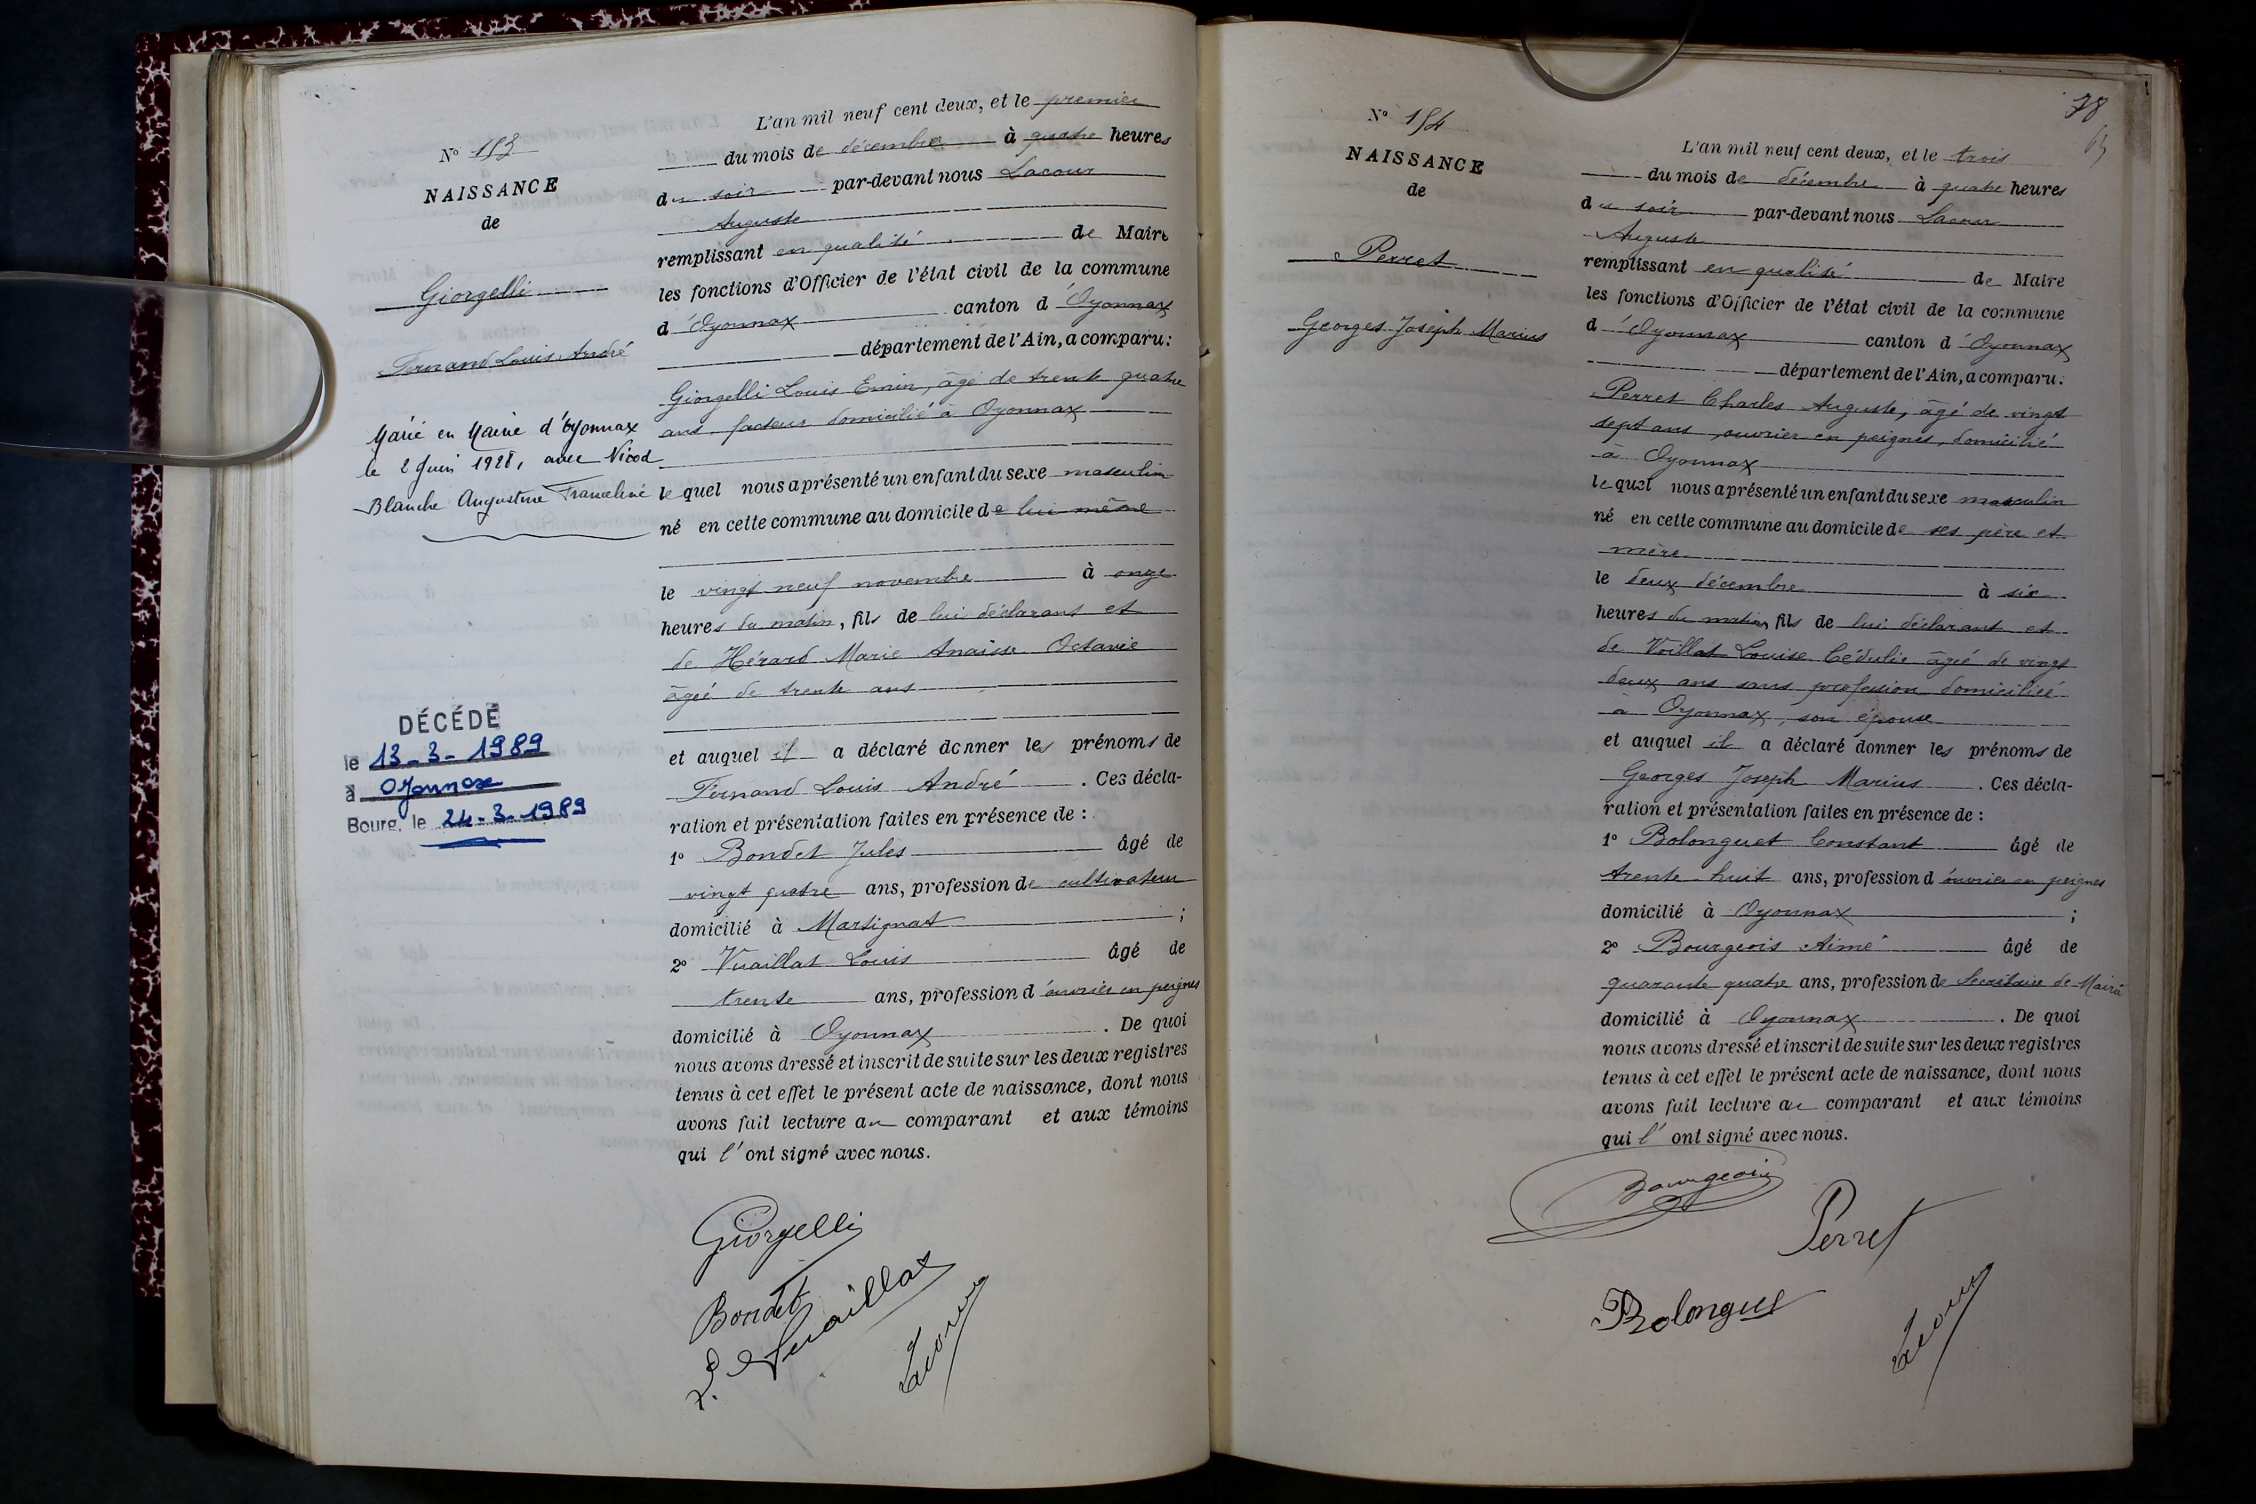 N° 153
NAISSANCE
de
Giorgelli
Fernand Louis André
Marié en Mairie d'Oyonnax
le 2 Juin 1928, avec Nicod
Blanche Augustine Franceline
DÉCÉDÉ
le 13-3-1989
à Oyonnax
Bourg, le 24-3-1989
L'an mil neuf cent deux, et le premier
du mois de décembre à quatre heures
du soir par-devant nous Lacour
Auguste
remplissant en qualité de Maire
les fonctions d'Officier de l'état civil de la commune
d'Oyonnax canton d'Oyonnax
département de l'Ain, a comparu:
Giorgelli Louis Emin, âgé de trente quatre
ans facteur domicilié à Oyonnax
lequel nous a présenté un enfant du sexe masculin
né en cette commune au domicile de lui même
le vingt neuf novembre à onze
heures du matin, fils de lui déclarant et
de Hérard Marie Anaïsse Octavie
âgée de trente ans
et auquel il a déclaré donner les prénoms de
Fernand Louis André. Ces décla-
ration et présentation faites en présence de :
1° Bondet Jules âgé de
vingt quatre ans, profession de cultivateur
domicilié à Martignat ;
2° Vuaillat Louis âgé de
trente ans, profession d'ouvrier en peignes
domicilié à Oyonnax. De quoi
nous avons dressé et inscrit de suite sur les deux registres
tenus à cet effet le présent acte de naissance, dont nous
avons fait lecture au comparant et aux témoins
qui l'ont signé avec nous.
Giorgelli
Bondet
L. Vuaillat
Lacour
78
N° 154
NAISSANCE
de
Perret
Georges Joseph Marius
L'an mil neuf cent deux, et le trois
du mois de décembre à quatre heures
du soir par-devant nous Lacour
Auguste
remplissant en qualité de Maire
les fonctions d'Officier de l'état civil de la commune
d'Oyonnax canton d'Oyonnax
département de l'Ain, a comparu:
Perret Charles Auguste, âgé de vingt
sept ans, ouvrier en peignes, domicilié
à Oyonnax
lequel nous a présenté un enfant du sexe masculin
né en cette commune au domicile de ses père et
mère
le deux décembre à six
heures du matin, fils de lui déclarant et
de Voillat Louise Cédulie âgée de vingt
deux ans sans profession domiciliée
à Oyonnax, son épouse
et auquel il a déclaré donner les prénoms de
Georges Joseph Marius. Ces décla-
ration et présentation faites en présence de :
1° Bolonguet Constant âgé de
trente huit ans, profession d'ouvrier en peignes
domicilié à Oyonnax ;
2° Bourgeois Aimé âgé de
quarante quatre ans, profession de Secrétaire de Mairie
domicilié à Oyonnax. De quoi
nous avons dressé et inscrit de suite sur les deux registres
tenus à cet effet le présent acte de naissance, dont nous
avons fait lecture au comparant et aux témoins
qui l'ont signé avec nous.
Bourgeois
Perret
Bolonguet
Lacour